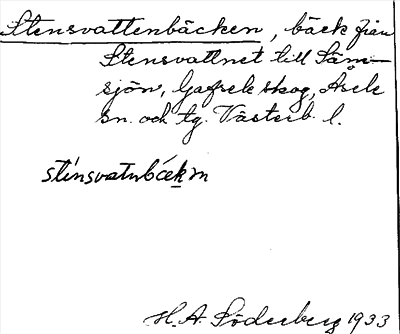 Stensvattenbäcken, bäck från
Stensvattnet till Säm-
sjön, Gafsele skog, Åsele
sn. och tg. Västerb. l.
H. A. Söderberg 1933